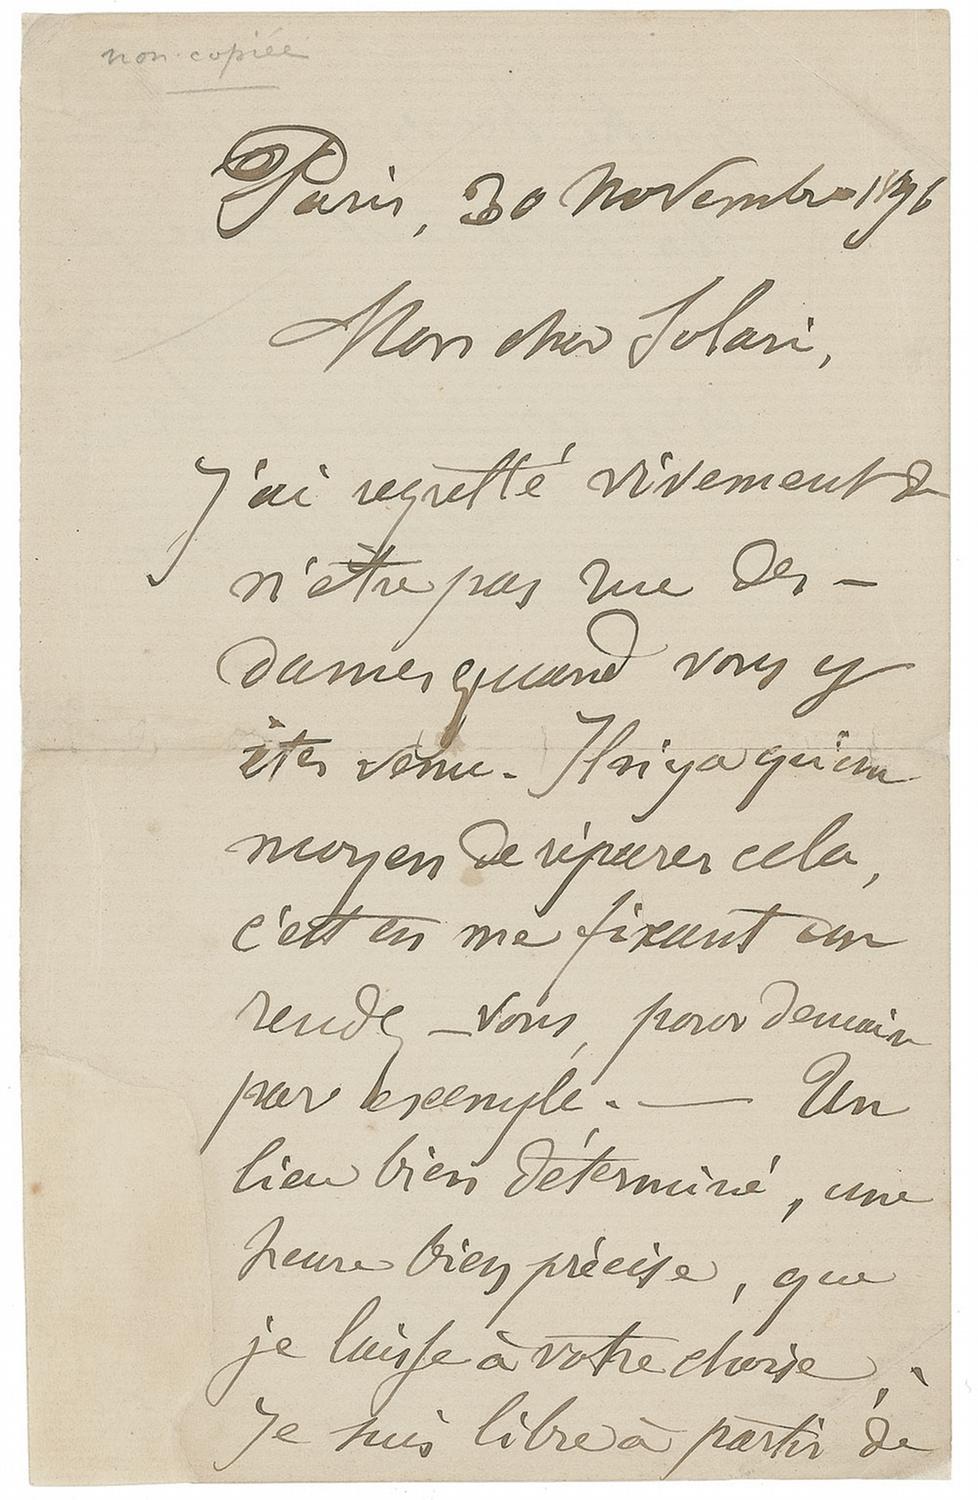 non copiée
Paris, 30 Novembre 1896
Mon cher Solari,
J'ai regretté vivement de
n'être pas rue des-
dames quand vous y
êtes venu. Il n'y a qu'un
moyen de réparer cela,
c'est en me fixant un
rendez-vous, pour demain
par exemple. — Un
lieu bien déterminé, une
heure bien précise, que
je laisse à votre choix,
Je suis libre à partir de